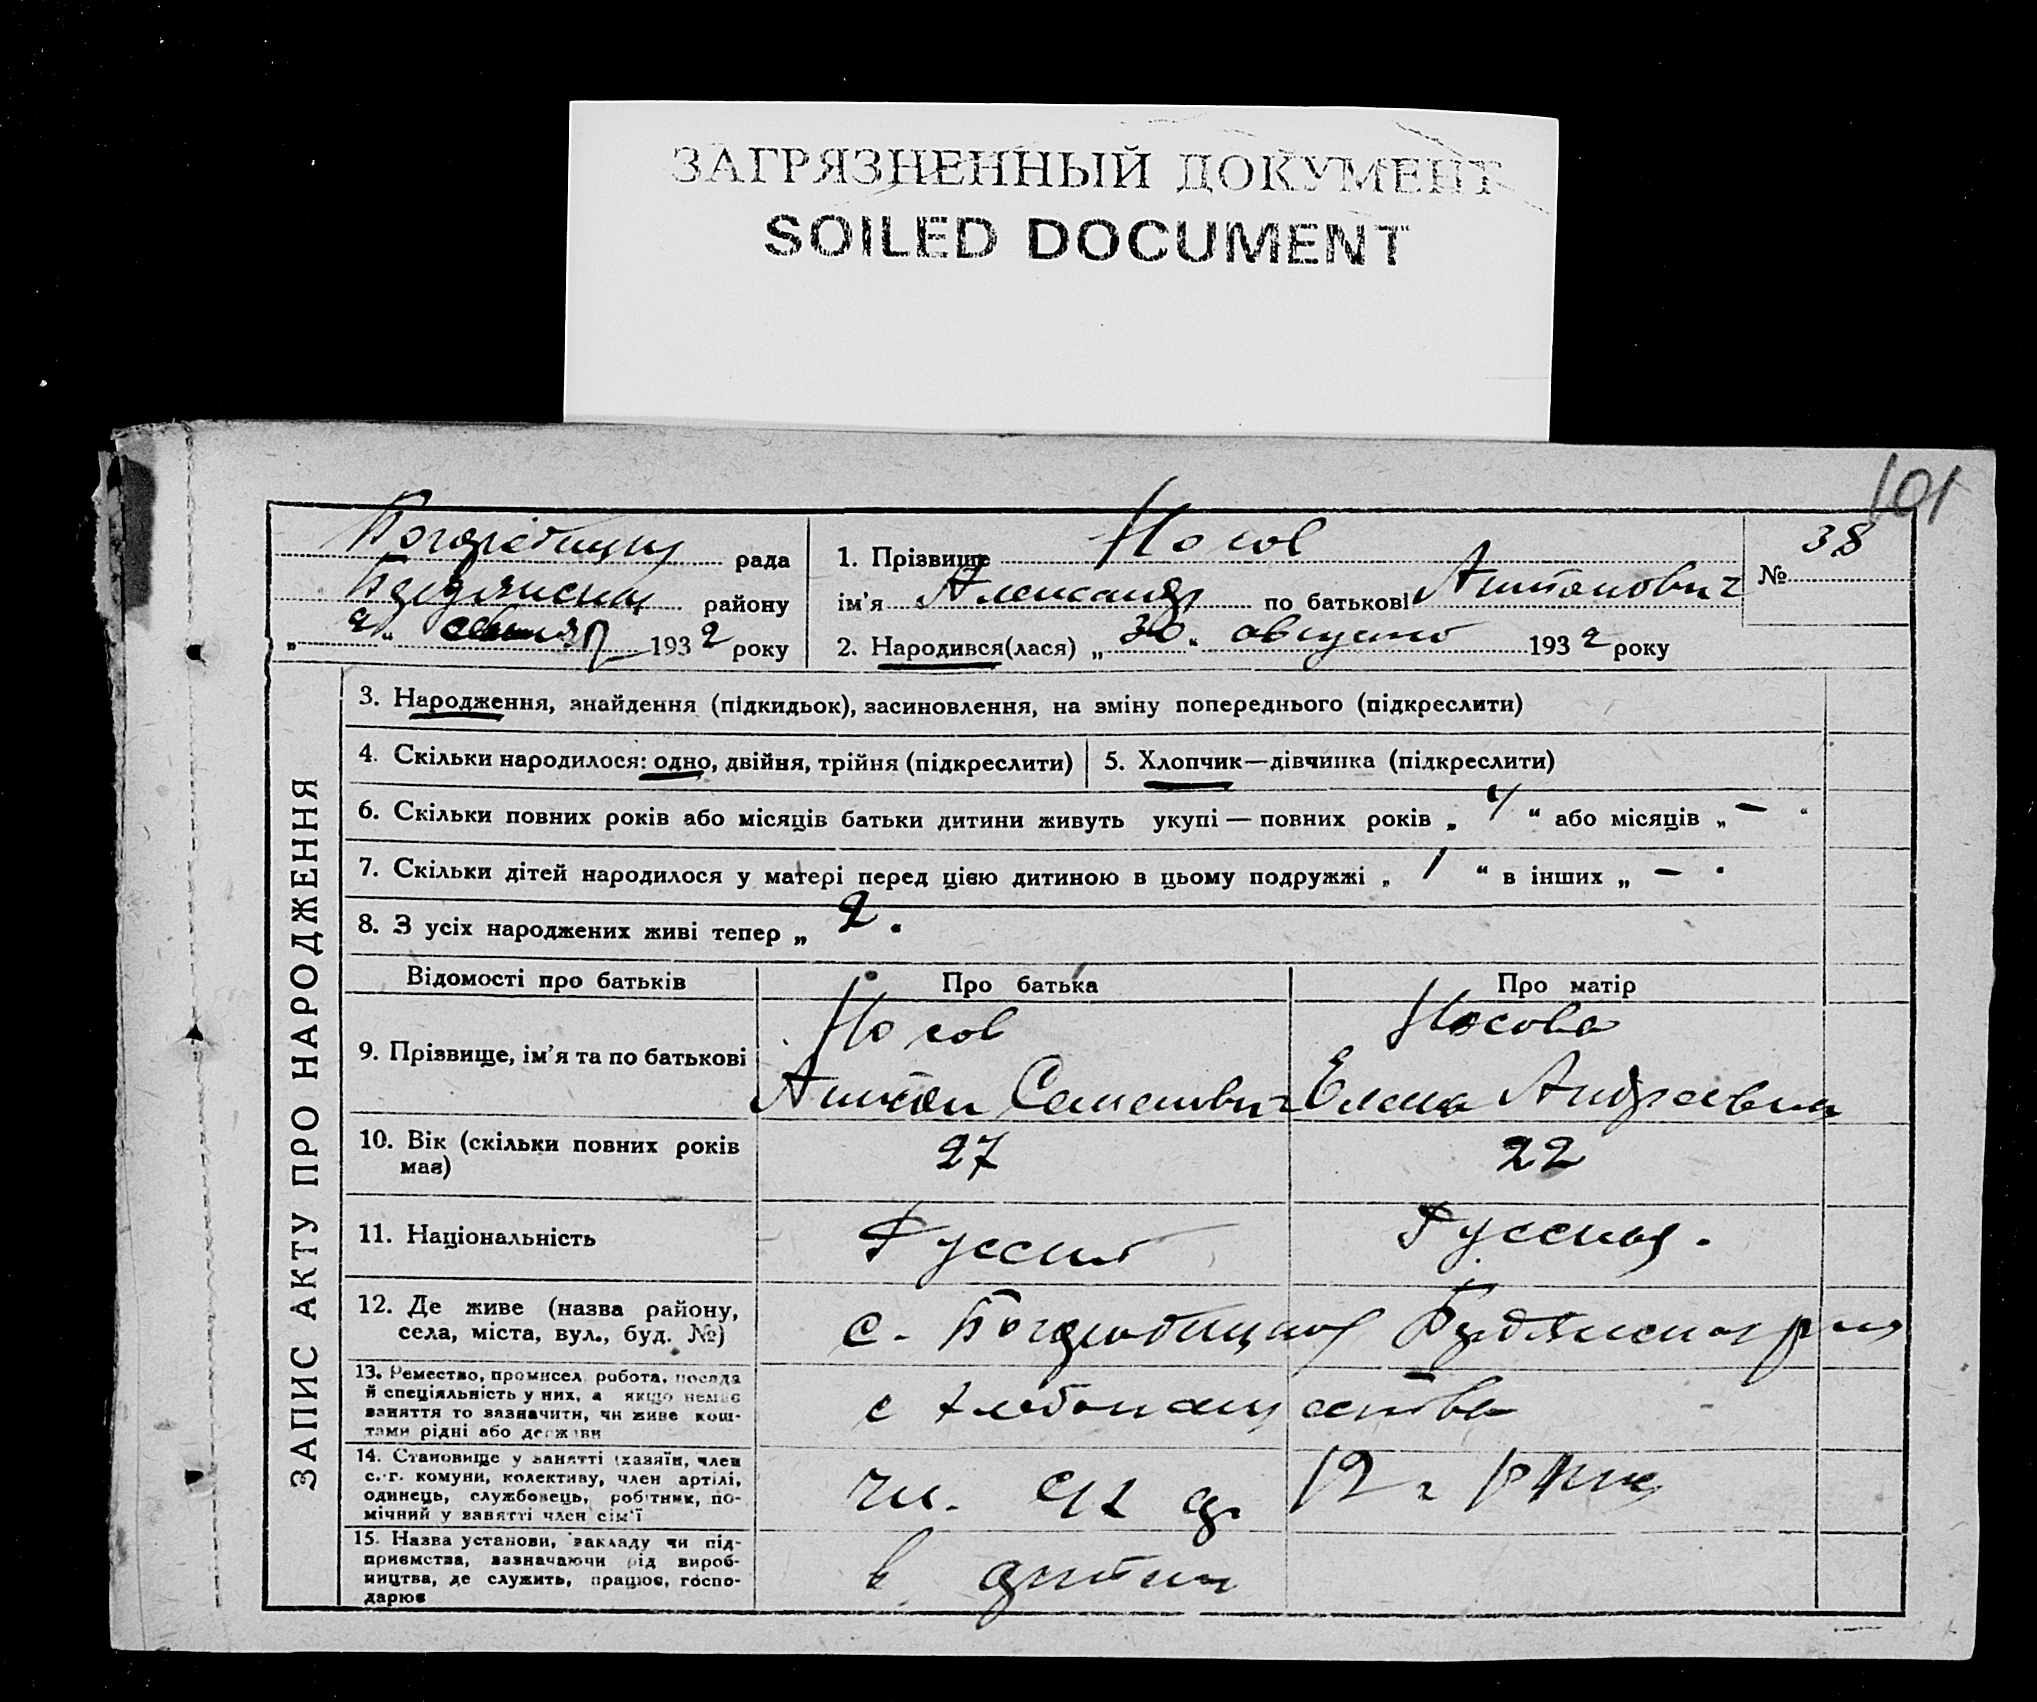 ЗАГРЯЗНЕННЫЙ ДОКУМЕНТ
SOILED DOCUMENT
101
рада
району
193 2 року
1. Прізвище Носов
ім'я Александр по батькові Антонович
2. Народився(лася) „ 30 “ августа 193 2 року
№ 38
ЗАПИС АКТУ ПРО НАРОДЖЕННЯ
3. Народження, знайдення (підкидьок), засиновлення, на зміну попереднього (підкреслити)
4. Скільки народилося: одно, двійня, трійня (підкреслити)
5. Хлопчик—дівчинка (підкреслити)
6. Скільки повних років або місяців батьки дитини живуть укупі — повних років „ 4 “ або місяців „ — “
7. Скільки дітей народилося у матері перед цією дитиною в цьому подружжі „ 1 “ в інших „ — "
8. З усіх народжених живі тепер „ 2 "
Відомості про батьків
Про батька
Про матір
9. Прізвище, ім'я та по батькові
Носов
Антон Семенович
Носова
Елена Андреевна
10. Вік (скільки повних років
має)
27
22
11. Національність
Русский
Русская.
12. Де живе (назва району,
села, міста, вул., буд. №)
с.
13. Ремество, промисел, робота, посада
й спеціяльність у них, а якщо немає
заняття то зазначити, чи живе кош-
тами рідні або держави
14. Становище у занятті (хазяїн, член
с.-г. комуни, колективу, член артілі,
одинець, службовець, робітник, по-
мічний у занятті член сім'ї
15. Назва установи, закладу чи під-
приємства, зазначаючи рід вироб-
ництва, де служить, працює, госпо-
дарює